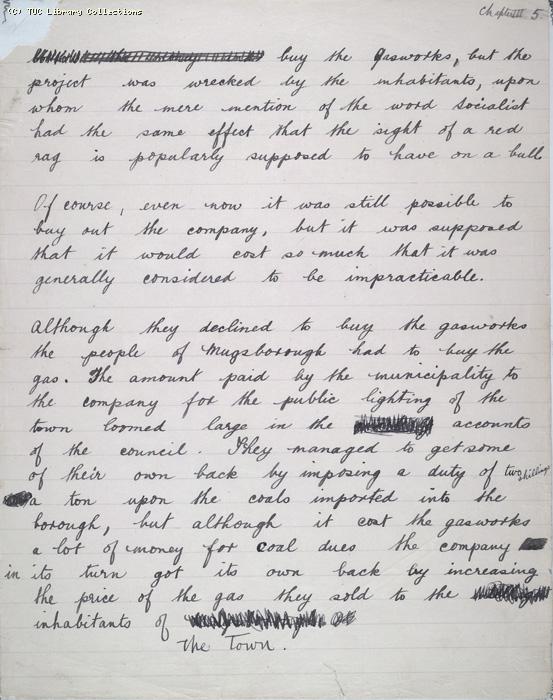 (C) TUC Library Collections
Chapter III 5.
buy the gasworks, but the
project was wrecked by the inhabitants, upon
whom the mere mention of the word Socialist
had the same effect that the sight of a red
rag is popularly supposed to have on a bull
Of course, even now it was still possible to
buy out the company, but it was supposed
that it would cost so much that it was
generally considered to be impracticable.
Although they declined to buy the gasworks
the people of Mugsborough had to buy the
gas. The amount paid by the municipality to
the company for the public lighting of the
town loomed large in the accounts
of the council. They managed to get some
of their own back by imposing a duty of two shillings
a ton upon the coals imported into the
borough, but although it cost the gasworks
a lot of money for coal dues the company
in its turn got its own back by increasing
the price of the gas they sold to the
inhabitants of
The Town.